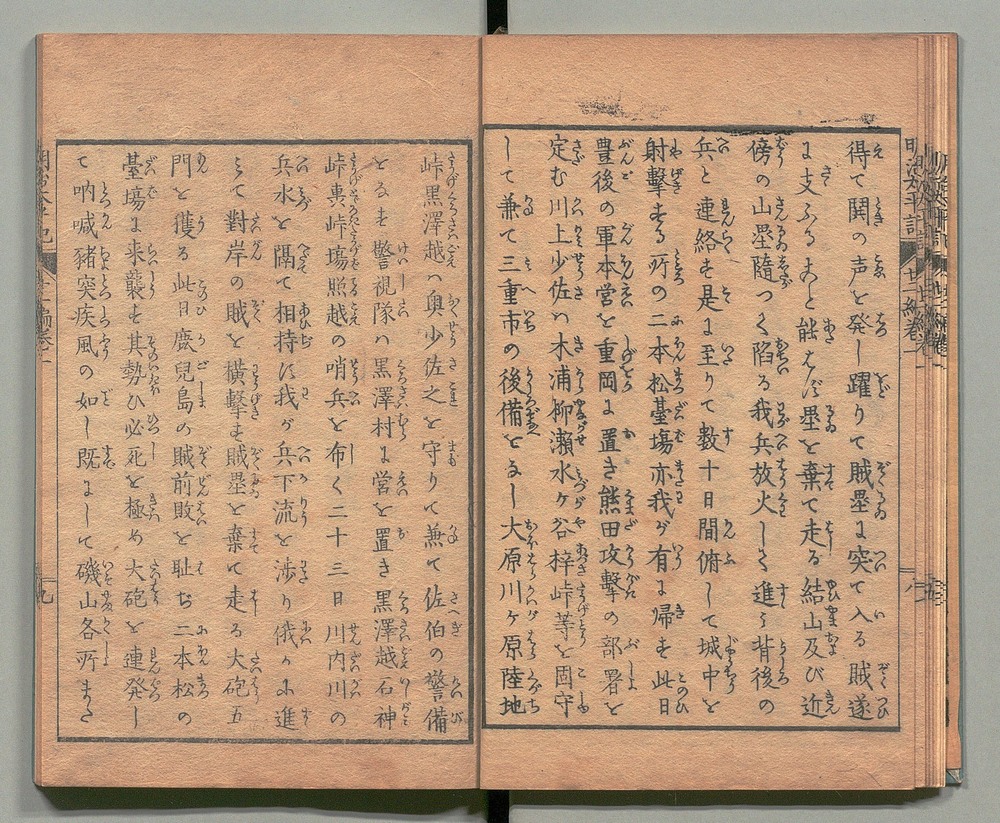 得て関の声を発し躍りて賊塁に突て入る賊遂
に支ふること能はず塁を棄て走る結山及び近
傍の山塁随つて陥る我兵放火しさ進む背後の
兵と連絡す是に至りて数十日間俯して城中を
射撃する所の二本松臺場亦我が有に帰す此日
豊後の軍本営を重岡に置き熊田攻撃の部署を
定む川上少佐ハ木浦柳瀬水ヶ谷梓峠等を固守
して兼て三重市の後備となし大原川ヶ原陸地
峠黒澤越ハ奥少佐之を守りて兼て佐伯の警備
となす警視隊ハ黒澤村に営を置き黒澤越石神
峠場照越の哨兵を布く二十三日川内川の
兵水を隔て相持す我が兵下流を渉り俄かに進
みて對岸の賊を横撃す賊塁を棄て走る大砲五
門を獲る此日鹿児島の賊前敗を耻ぢ二本松の
臺場に来襲す其勢ひ必死を極め大砲を連発し
て吶喊猪突疾風の如し既にして磯山各所また
明治太平記
廿二編巻一
八
九